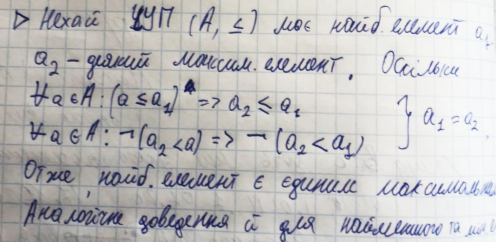 ▷ Нехай ЧУП (A, ≤) має найб. елемент a₁,
a₂ – деякий максим. елемент. Оскільки
∀a∈A: (a ≤ a₁) => a₂ ≤ a₁
∀a∈A: ¬(a₂ < a) => ¬(a₂ < a₁) } a₁ = a₂.
Отже, найб. елемент є єдиним
Аналогічне доведення й для найменшого та